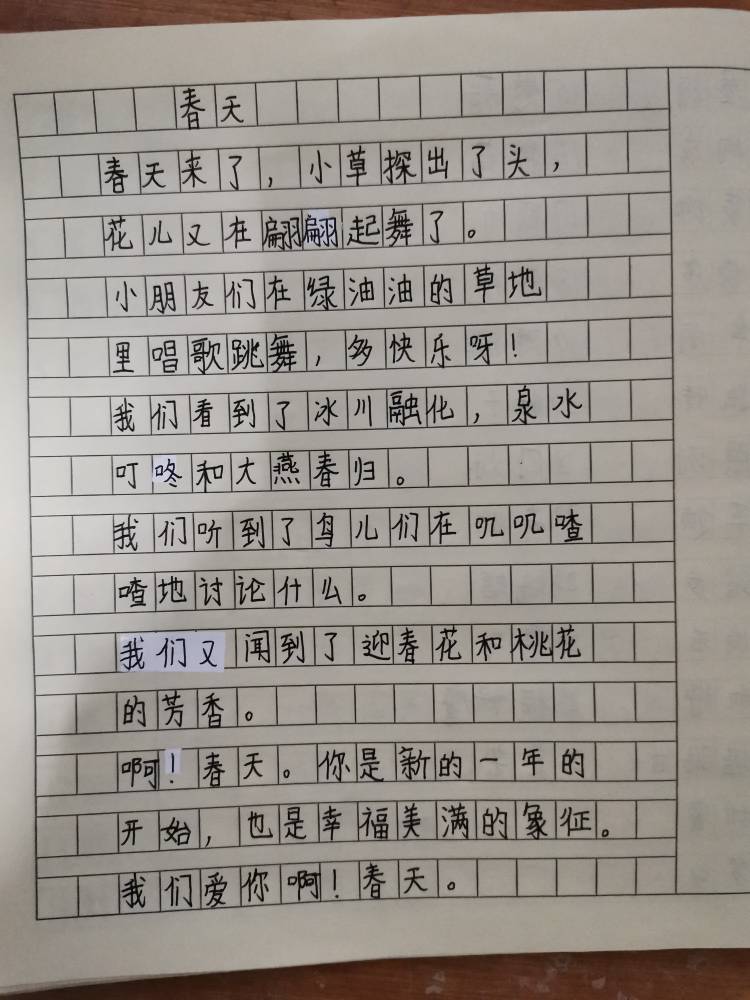 春天
春天来了，小草探出了头，
花儿又在翩翩起舞了。
小朋友们在绿油油的草地
里唱歌跳舞，多快乐呀！
我们看到了冰川融化，泉水
叮咚和大燕春归。
我们听到了鸟儿们在叽叽喳
喳地讨论什么。
我们又闻到了迎春花和桃花
的芳香。
啊！春天。你是新的一年的
开始，也是幸福美满的象征。
我们爱你啊！春天。